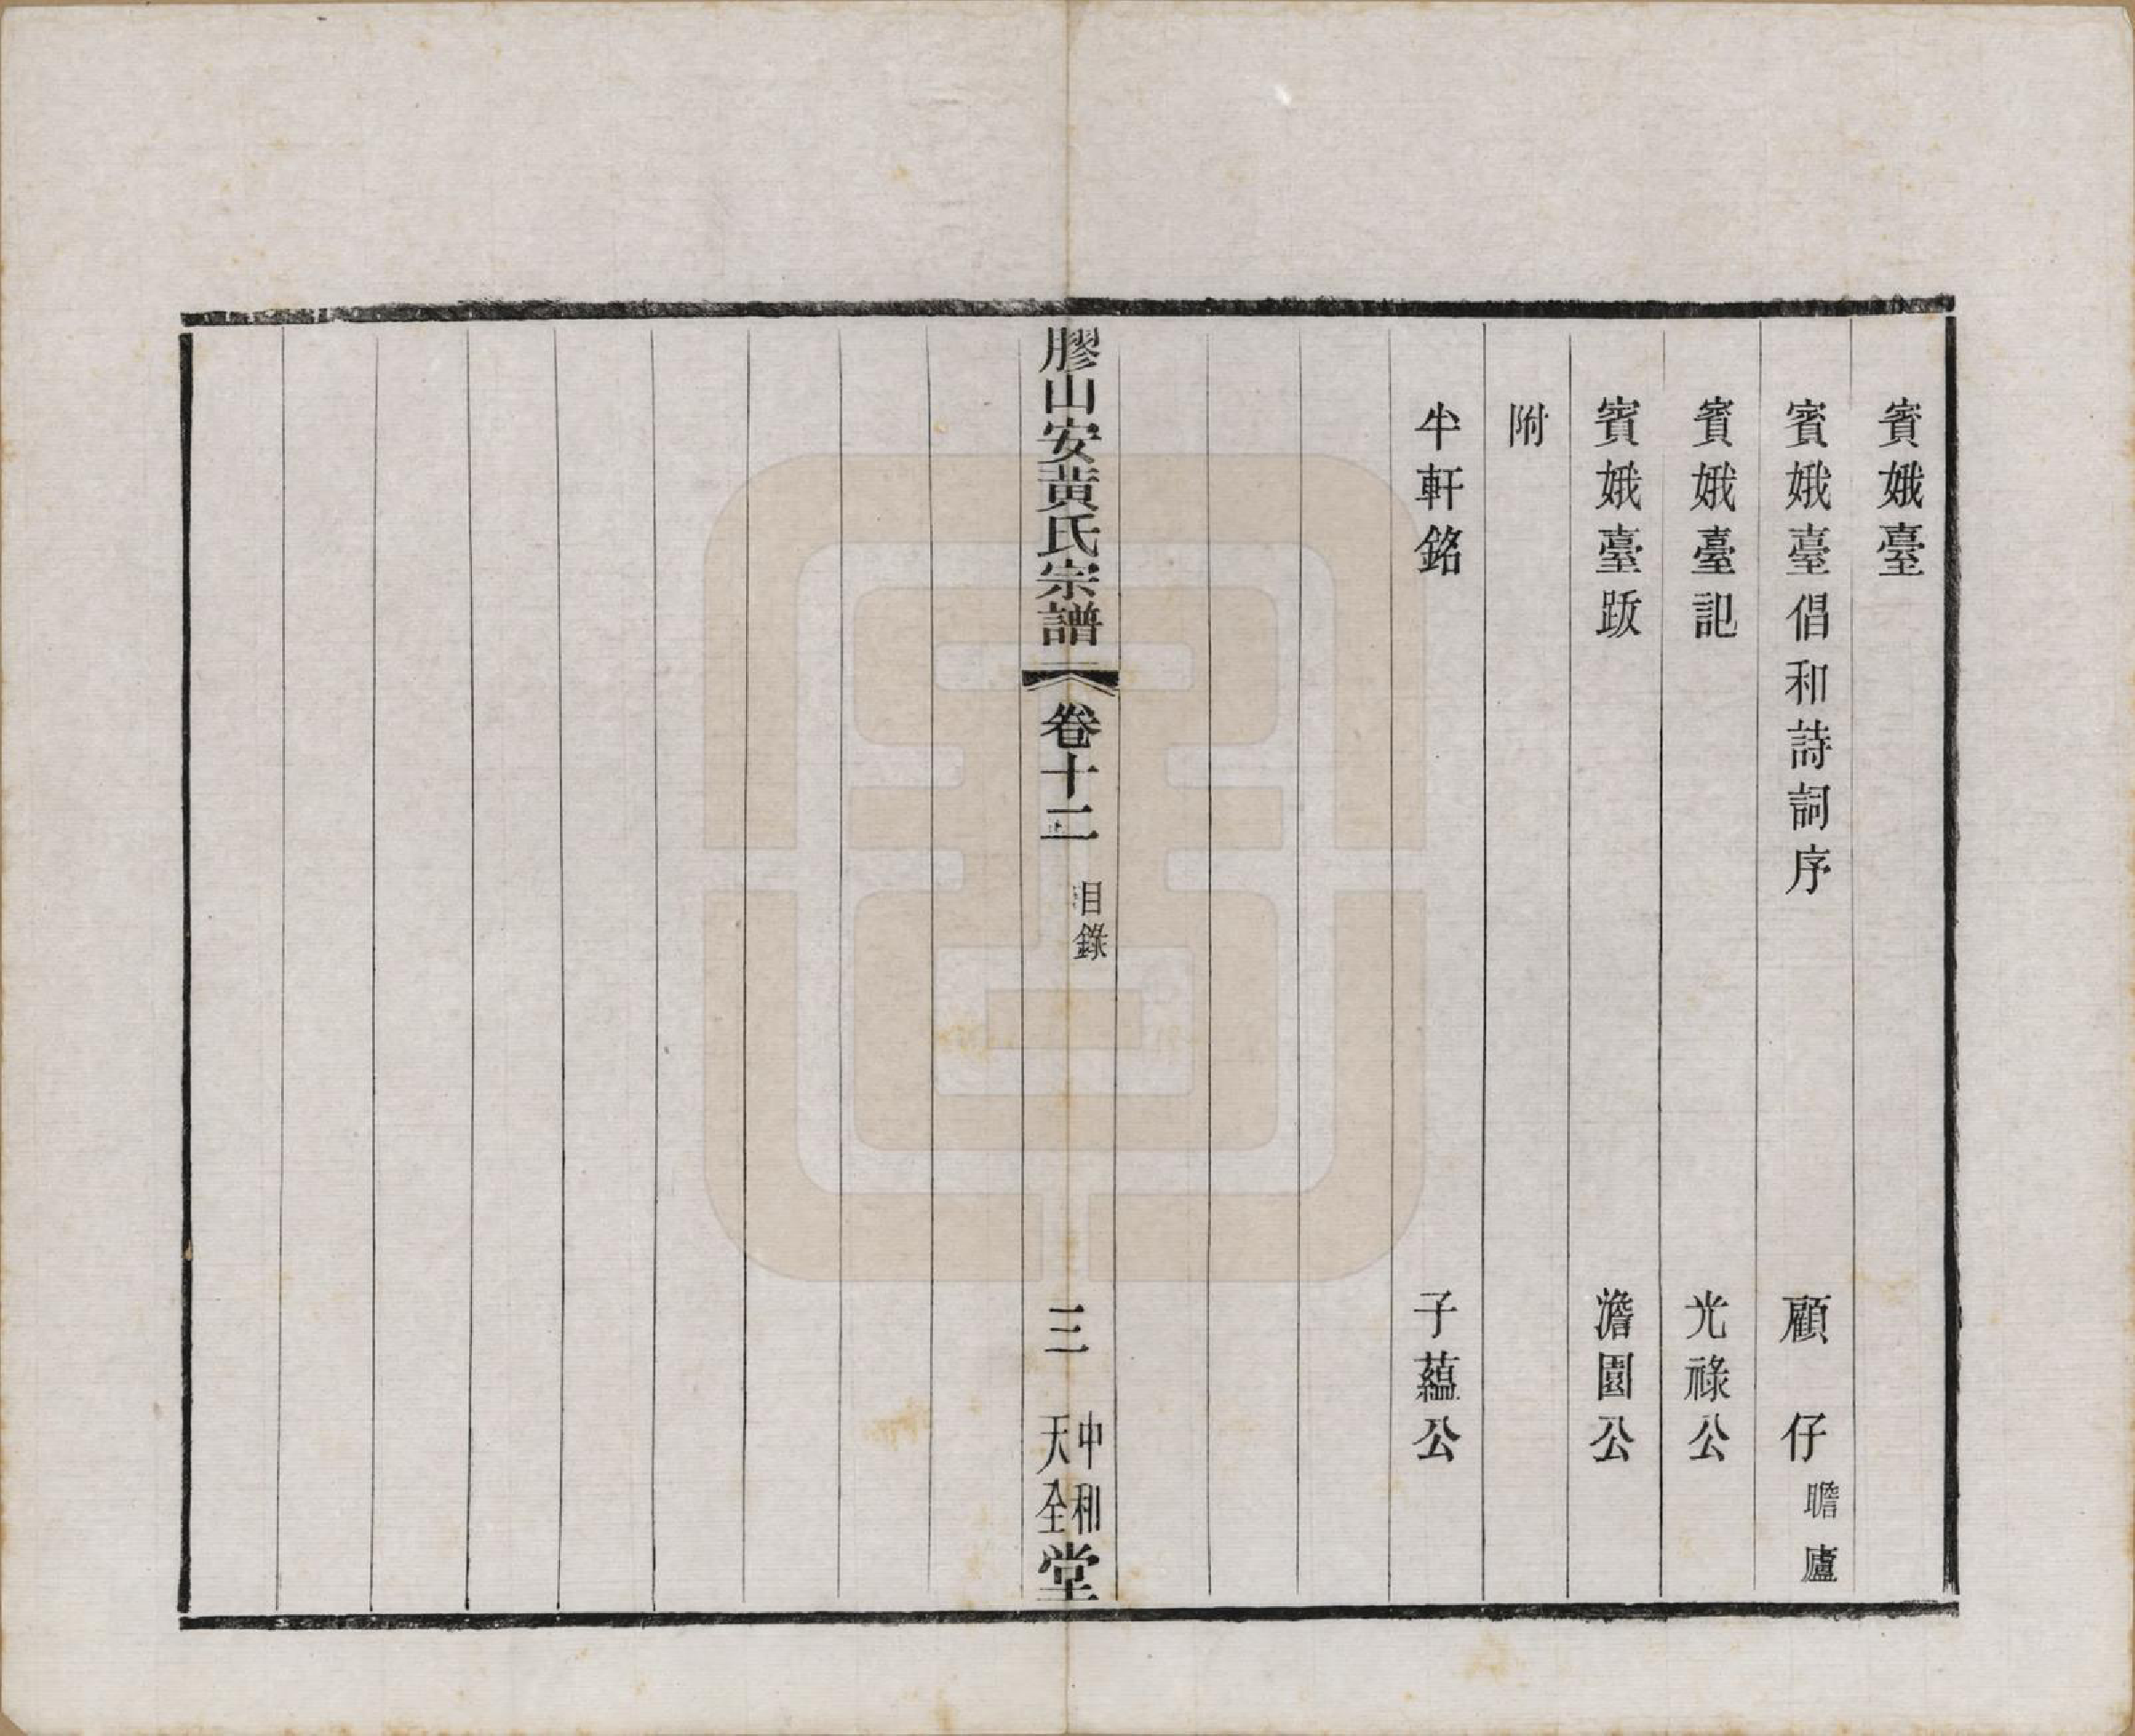 賓娥臺
賓娥臺倡和詩詞序 顧仔瞻廬
賓娥臺記 光祿公
賓娥臺跋 澹園公
附
半軒銘 子蘊公
膠山安黃氏宗譜 卷十二 目錄 三 中和天全堂